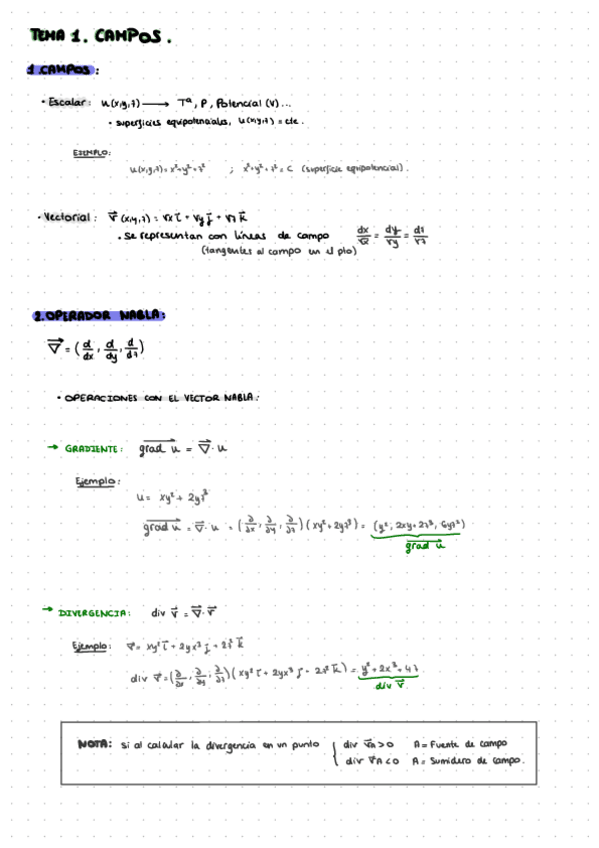 TEMA 1. CAMPOS.
1. CAMPOS:
· Escalar: u(x,y,z) ⟶ Tª, P, Potencial (V)...
· superficies equipotenciales, u(x,y,z) = cte.
EJEMPLO:
u(x,y,z) = x²+y²+z² ; x²+y²+z² = C (superficie equipotencial).
· Vectorial: v⃗ (x,y,z) = vx i⃗ + vy j⃗ + vz k⃗
· Se representan con líneas de campo dx/vx = dy/vy = dz/vz
(tangentes al campo en el pto)
2. OPERADOR NABLA:
∇⃗ = (d/dx, d/dy, d/dz)
· OPERACIONES CON EL VECTOR NABLA:
→ GRADIENTE: grad u = ∇⃗ · u
Ejemplo:
u = xy² + 2yz³
grad u = ∇⃗ · u = (∂/∂x, ∂/∂y, ∂/∂z)(xy² + 2yz³) = (y², 2xy+2z³, 6yz²)
grad u
→ DIVERGENCIA: div v⃗ = ∇⃗ · v⃗
Ejemplo: v⃗ = xy² i⃗ + 2yx³ j⃗ + 2z² k⃗
div v⃗ = (∂/∂x, ∂/∂y, ∂/∂z)(xy² i⃗ + 2yx³ j⃗ + 2z² k⃗) = y² + 2x³ + 4z
div v⃗
NOTA: si al calcular la divergencia en un punto { div v⃗A > 0 A = Fuente de campo
div v⃗A < 0 A = Sumidero de campo.